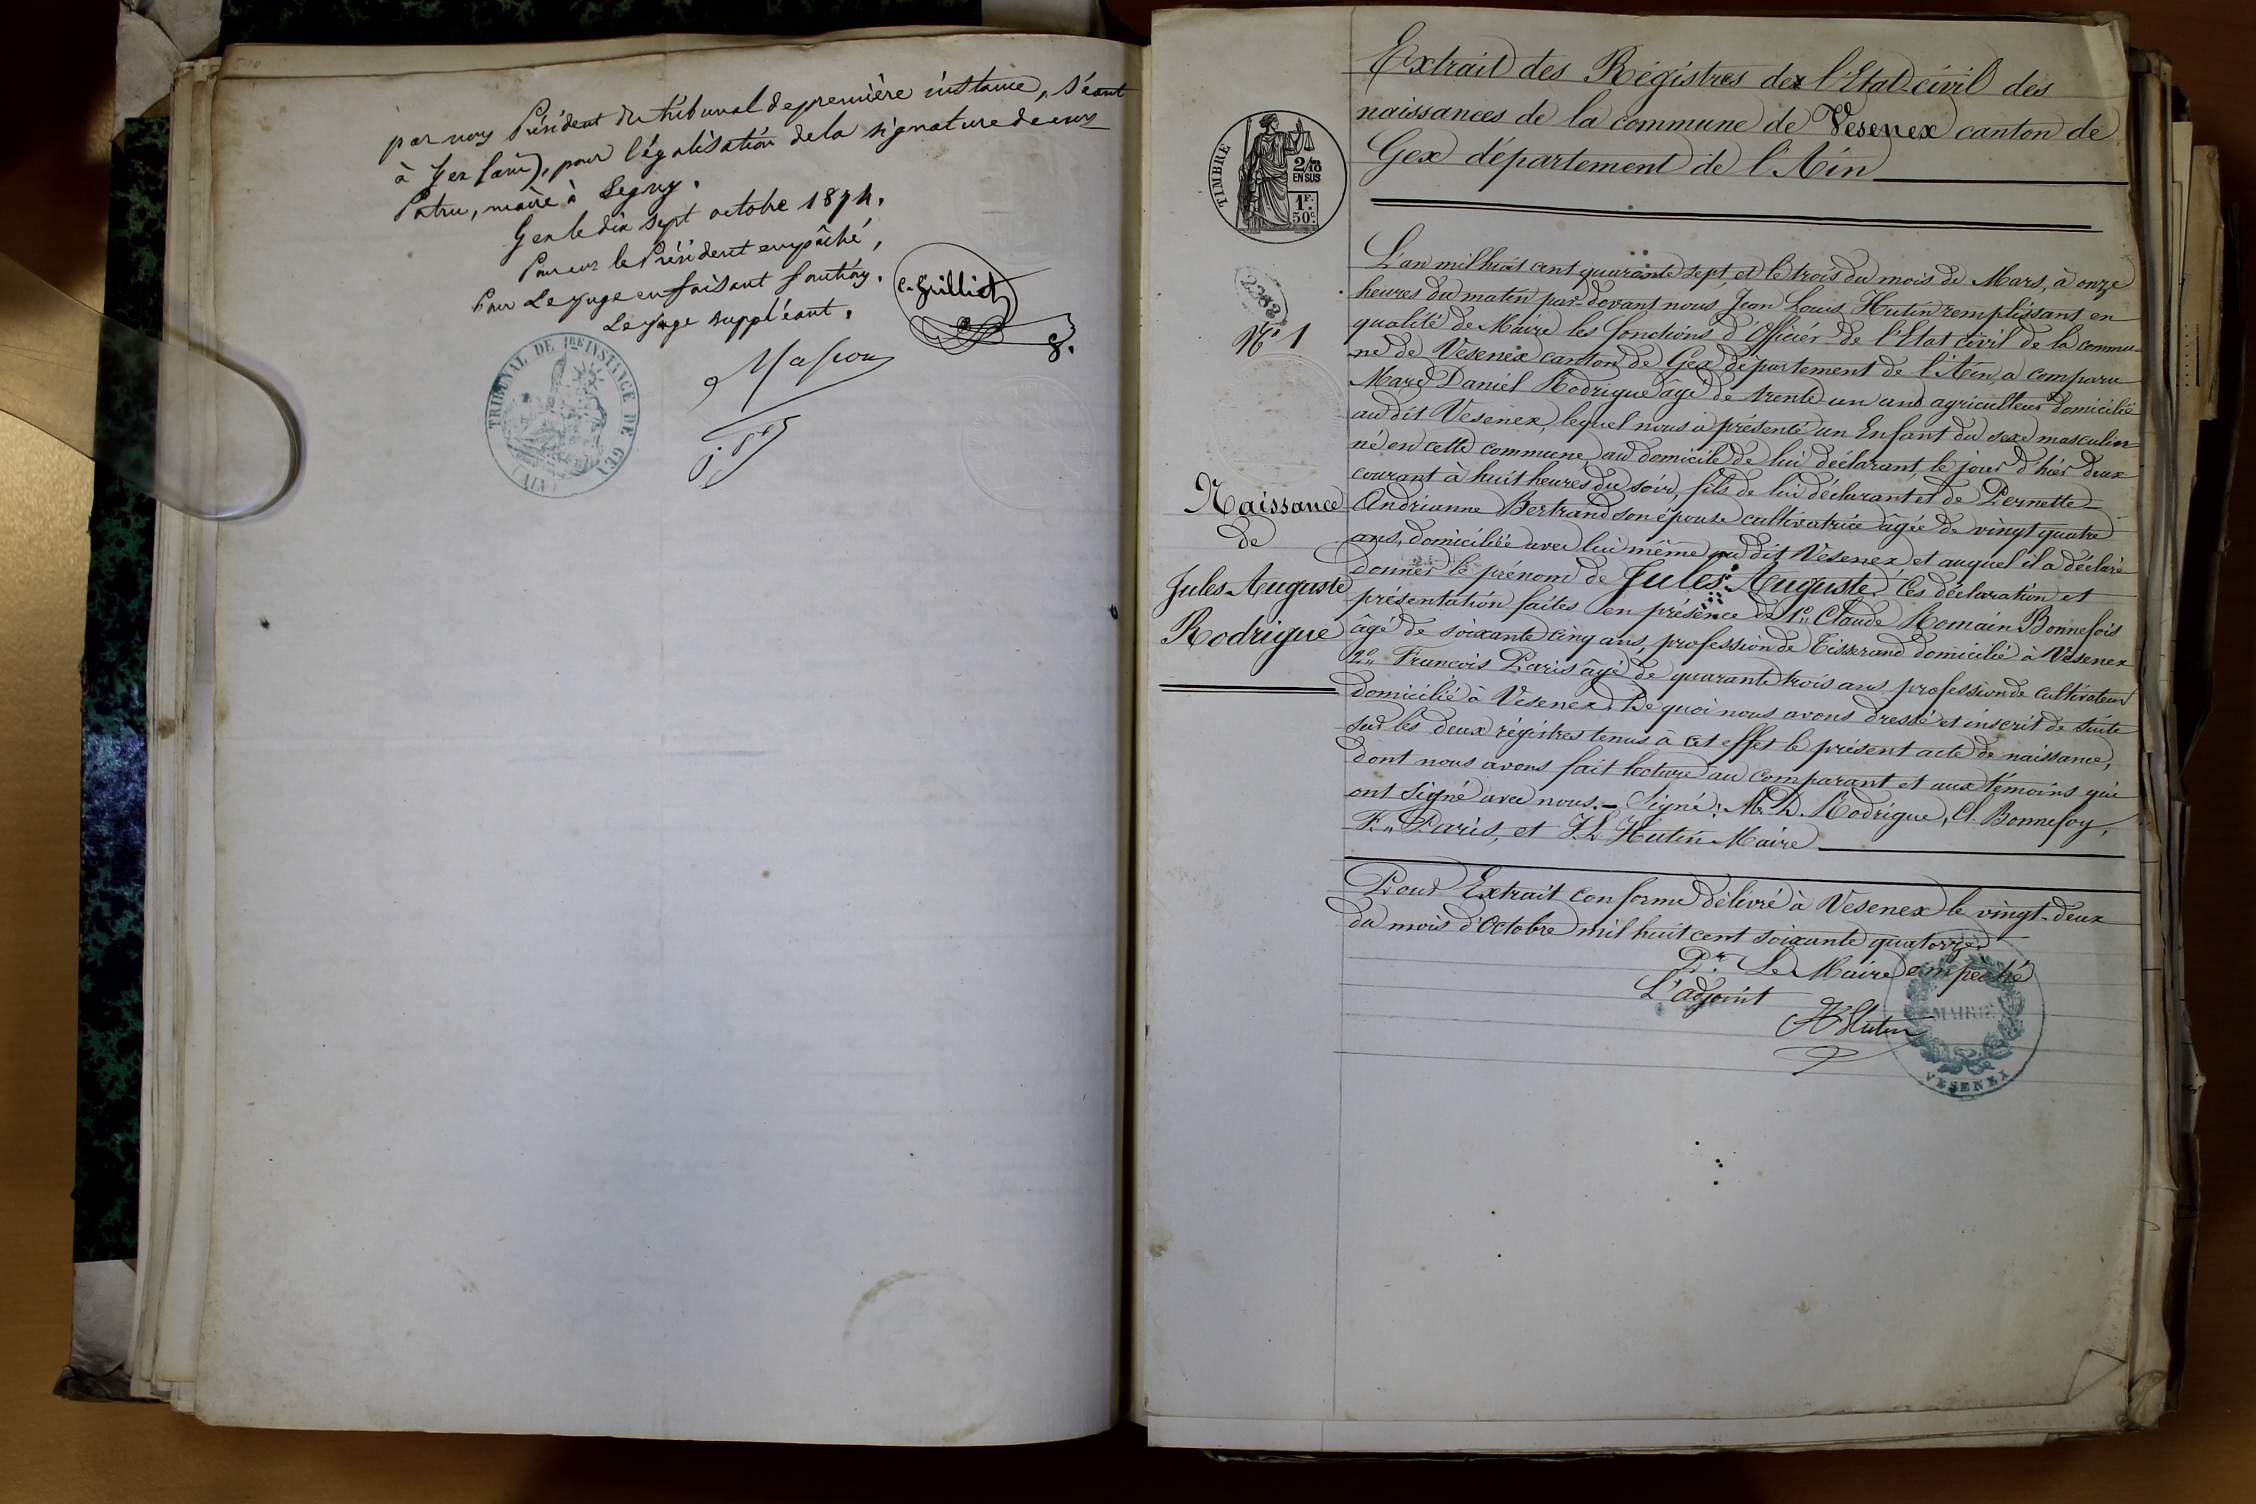 par nous Président du tribunal de première instance, séant
à Gex (ain), pour légalisation de la signature de
Patru, maire à Segny.
Gex le dix sept octobre 1874.
Pour le Président empêché,
Pour Le juge en faisant fonction,
Le juge suppléant.
TRIBUNAL DE 1ERE INSTANCE DE GEX
(AIN)
Extrait des Régistres de l'Etat-civil des
naissances de la commune de Vesenex canton de
Gex département de l'Ain
TIMBRE
2/10
EN SUS
1F.
50c.
2382
No. 1
Naissance
de
Jules Auguste
Rodrigue
L'an mil huit cent quarante sept, et le trois du mois de Mars, à onze
heures du matin par-devant nous, Jean Louis Hutin remplissant en
qualité de Maire les fonctions d'Officier de l'Etat civil de la commu-
ne de Vesenex canton de Gex département de l'Ain, a comparu
Marc Daniel Rodrigue âgé de trente un ans agriculteur domicilié
au dit Vesenex, lequel nous a présenté un Enfant du sexe masculin
né en cette commune au domicile de lui déclarant, le jour d'hier deux
courant à huit heures du soir, fils de lui déclarant et de Pernette
Andrianne Bertrand son épouse cultivatrice âgée de vingt quatre
ans, domiciliée avec lui même au dit Vesenex et auquel il a déclaré
donner le prénom de Jules Auguste. Ces déclaration et
présentation faites en présence de 1o. Claude Romain Bonnefois
âgé de soixante cinq ans, profession de Tisserand domicilié à Vesenex
2o. François Paris âgé de quarante trois ans profession de cultivateur
domicilié à Vesenex. De quoi nous avons dressé et inscrit de suite
sur les deux régistres tenus à cet effet le présent acte de naissance,
dont nous avons fait lecture au comparant et aux témoins qui
ont signé avec nous. - Signé: M. D. Rodrigue, Cl. Bonnefoy,
F. Paris, et J. L. Hutin Maire
Pour Extrait conforme délivré à Vesenex le vingt-deux
du mois d'Octobre mil huit cent soixante quatorze.
Pr. Le Maire empêché
L'adjoint
Hutin
MAIRIE
VESENEX